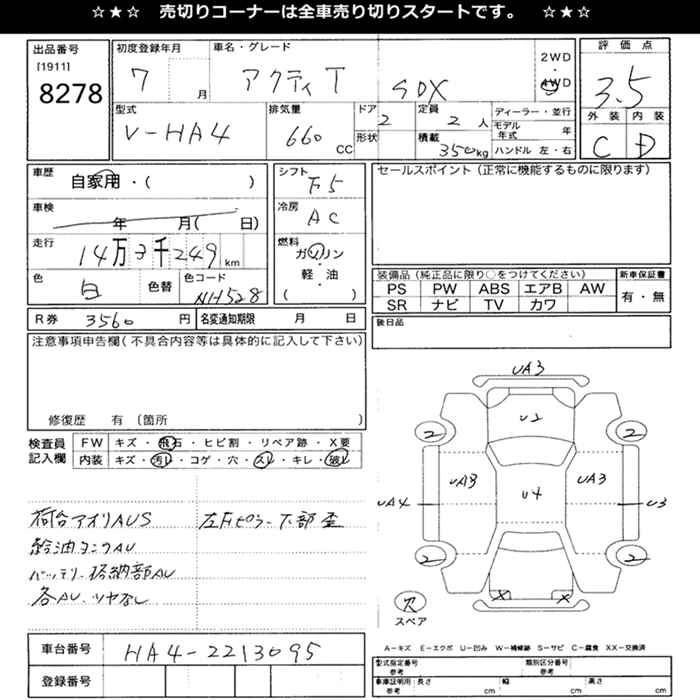 ☆★☆ 売切りコーナーは全車売り切りスタートです。 ☆★☆
出品番号 初度登録年月 車名・グレード 評価点
[1911] 8278 7 月 アクティT SDX 2WD 4WD 3.5
型式 排気量 ドア 定員 ディーラー・並行 外装 内装
V-HA4 660 CC 2 2 人 モデル年式 年 C D
形状 積載 350kg ハンドル 左・右
車歴 自家用・( ) シフト F5 セールスポイント（正常に機能するものに限ります）
車検 年 月( 日) 冷房 AC
走行 14万3千249 km 燃料 ガソリン・軽・油 ( )
色 白 色替 色コード NH528
装備品（純正品に限り○をつけてください） 新車保証書
PS PW ABS エアB AW 有・無
SR ナビ TV カワ
R券 3560 円 名変通知期限 月 日 後日品
注意事項申告欄（不具合内容等は具体的に記入して下さい）
修復歴 有 〔箇所 〕
検査員記入欄 FW キズ・飛石・ヒビ割・リペア跡・X要
内装 キズ・汚レ・コゲ・穴・スレ・キレ・破レ
荷台アオリAUS 左右ピラー下部歪
給油タンクAU
バッテリー格納部AU
各AU、ツヤなし
UA3
U2
2 2
UA3 UA3
UA4 U4 U3
2 2
X X
穴
スペア
A−キズ E−エクボ U−凹み W−補修跡 S−サビ C−腐食 XX−交換済
車台番号 HA4-2213095
登録番号
型式指定番号 参考 類別区分番号 参考
車庫証明用 参考 長さ cm 幅 cm 高さ cm